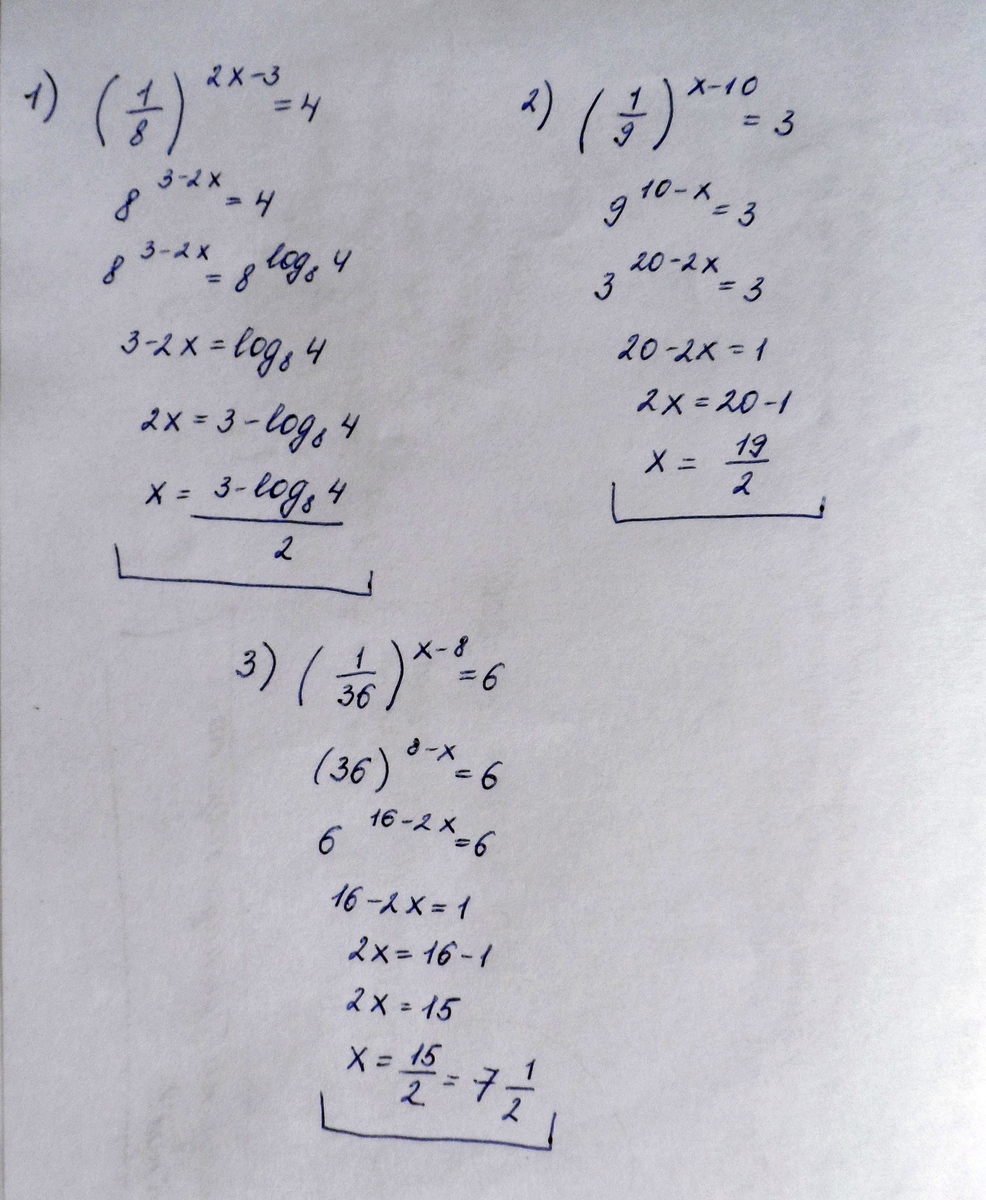 1) (1/8)^(2x-3) = 4
8^(3-2x) = 4
8^(3-2x) = 8^(log₈ 4)
3-2x = log₈ 4
2x = 3 - log₈ 4
x = (3 - log₈ 4)/2
2) (1/9)^(x-10) = 3
9^(10-x) = 3
3^(20-2x) = 3
20-2x = 1
2x = 20-1
x = 19/2
3) (1/36)^(x-8) = 6
(36)^(8-x) = 6
6^(16-2x) = 6
16-2x = 1
2x = 16-1
2x = 15
x = 15/2 = 7 1/2